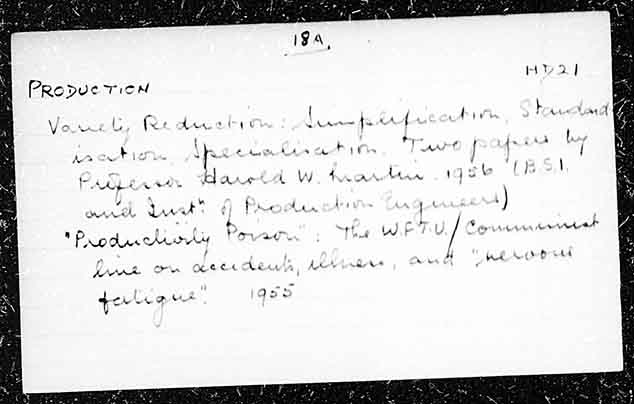 18A.
HD21
PRODUCTION
Variety Reduction: Simplification, Standard
isation, Specialisation. Two papers by
Professor Harold W. Martin. 1956 (B.S.I.
and Instn. of Production Engineers)
"Productivity Poison": The W.F.T.U./Communist
line on accidents, illness, and "nervous
fatigue". 1955